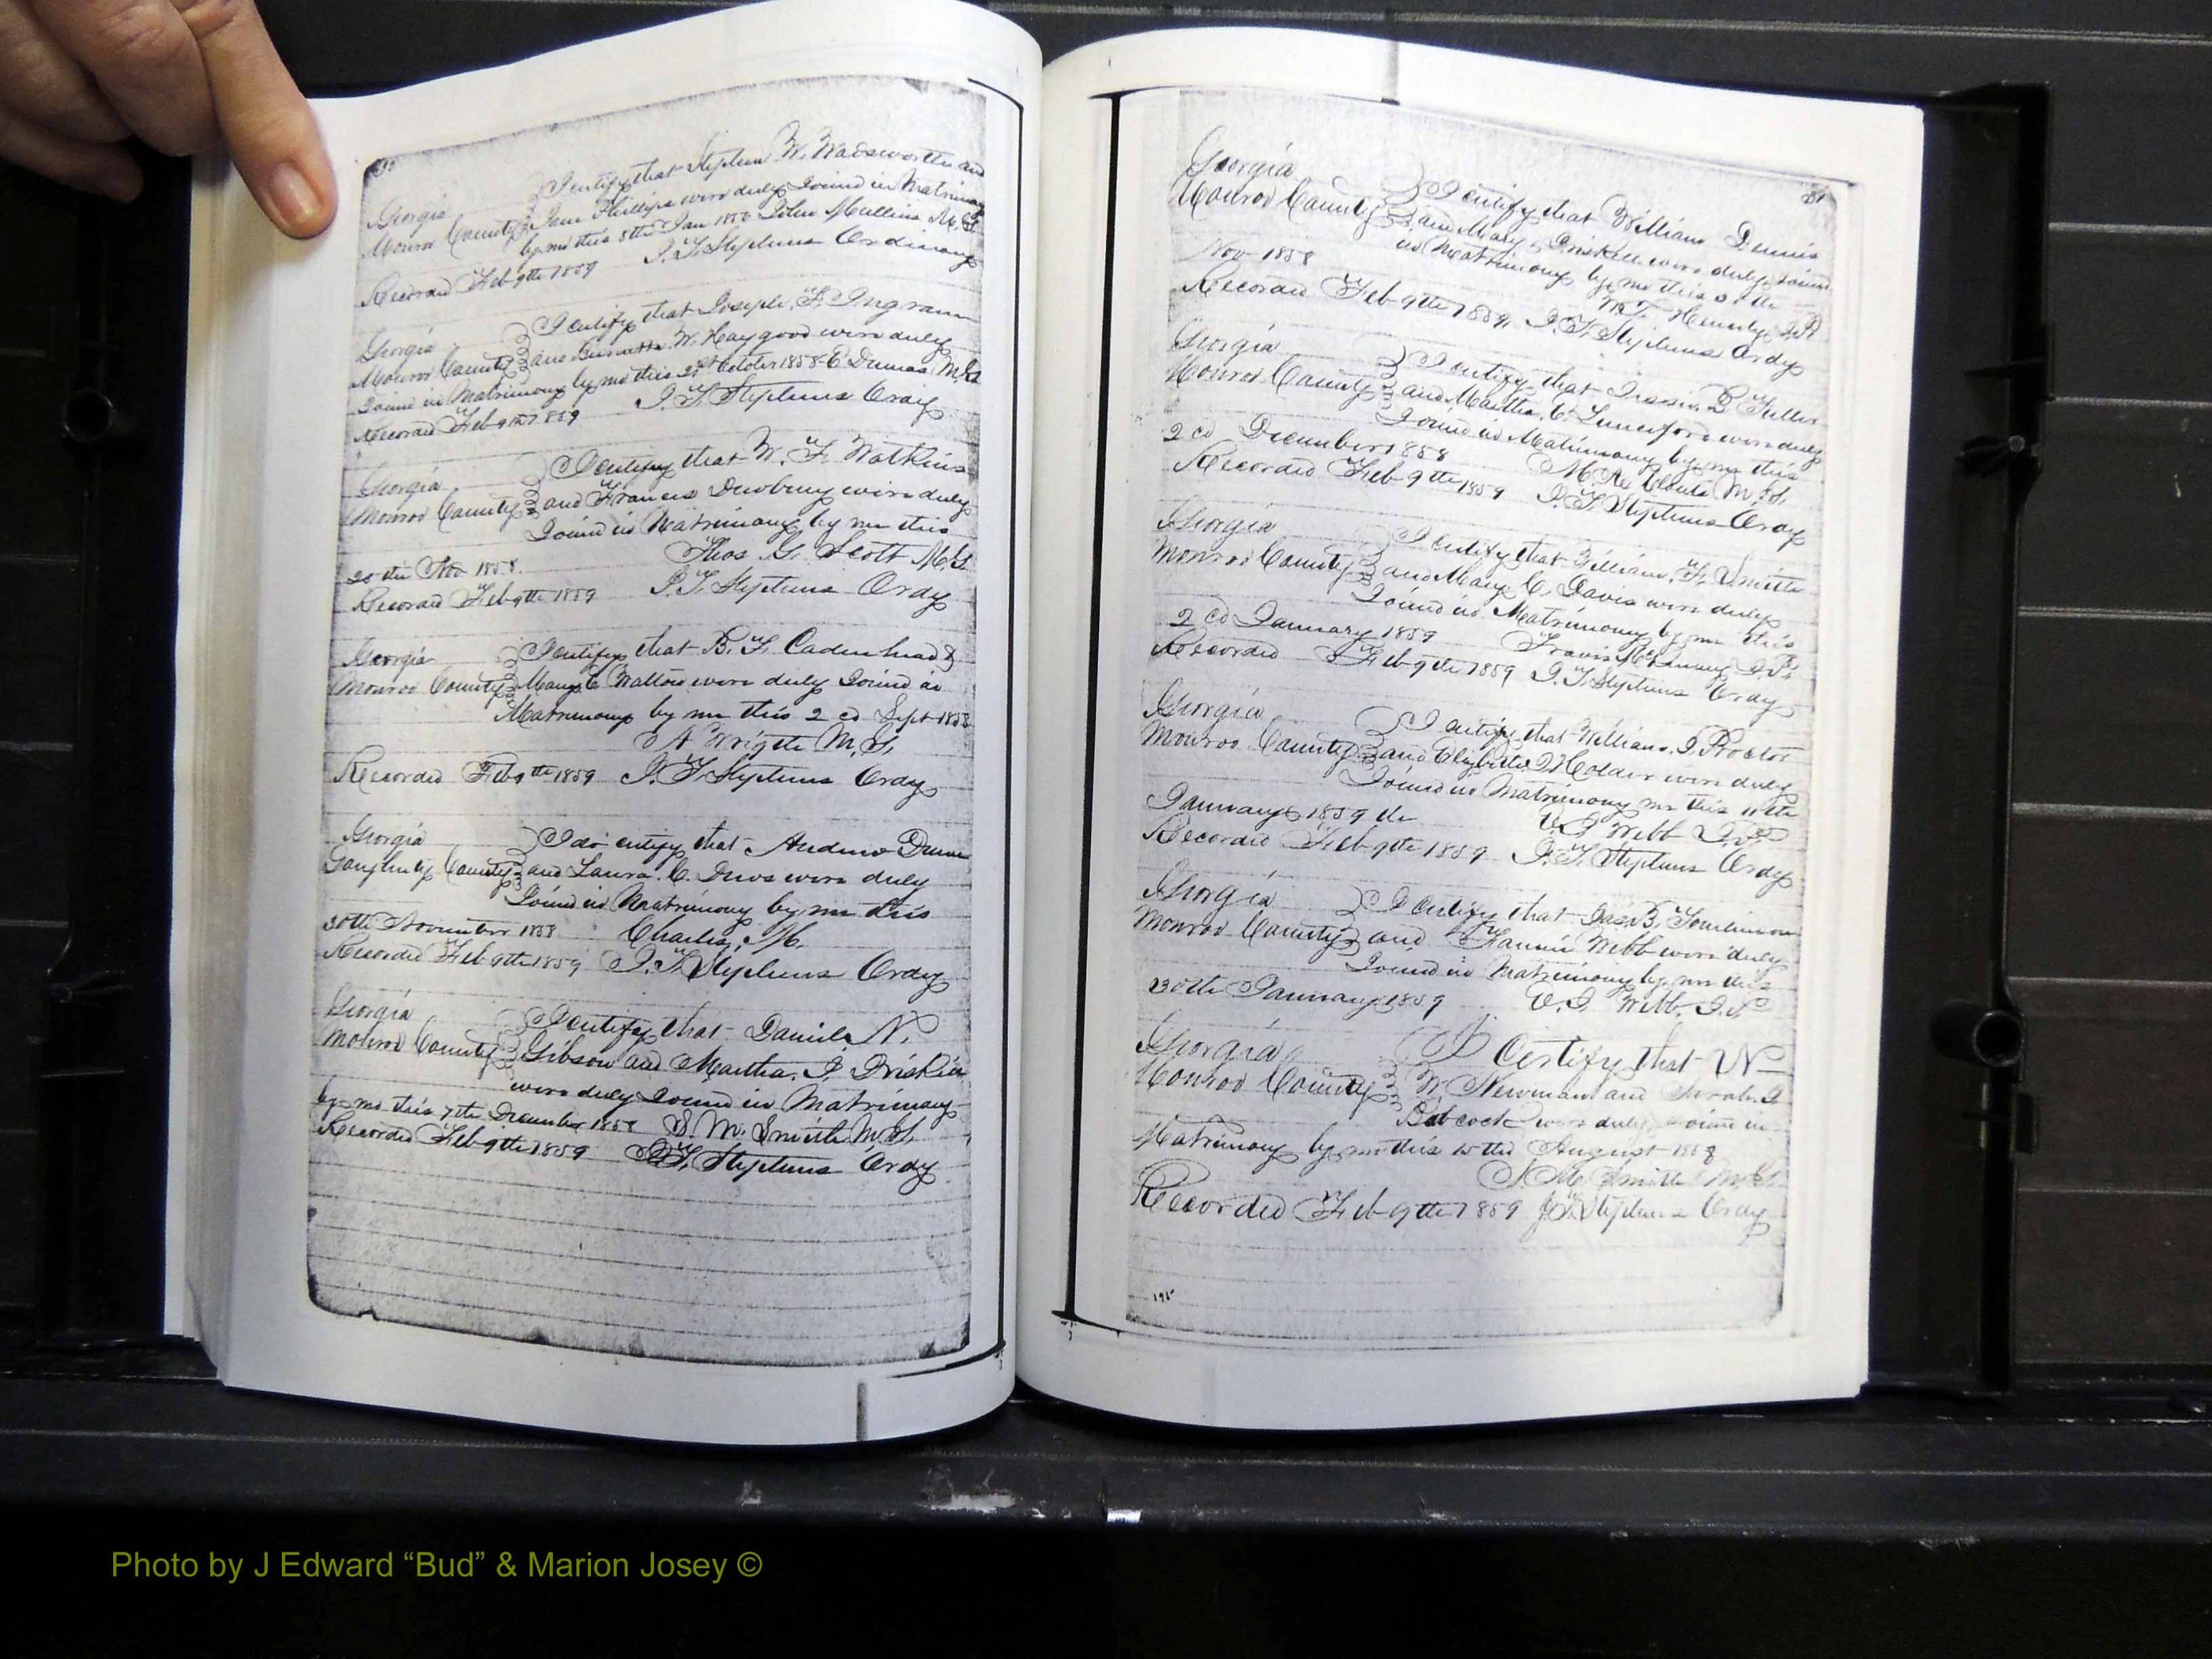 Georgia
Monroe County
I certify that Stephen W. Wadsworth and
Jane Phillips were duly Joined in Matrimony
by me this 8th Jan John Mullins M.G.
Recorded Feb 9th 1859 J. T. Stephens Ordinary
Georgia
Monroe County
I certify that Joseph F. Ingram
and W. Haygood were duly
Joined in Matrimony by me this October 1858 E Dumas M.G.
Recorded Feb 9th 1859 J. T. Stephens Ordy
Georgia
Monroe County
I certify that W. F. Watkins
and Frances Dewberry were duly
Joined in Matrimony by me this
Nov 1858. Thos G. Scott M.G.
Recorded Feb 9th 1859 J. T. Stephens Ordy
Georgia
Monroe County
I certify that B. F. Cadenhead &
Mary C Walton were duly Joined in
Matrimony by me this 2cd Sept 1858
A Wright M.G.
Recorded Feb 9th 1859 J. T. Stephens Ordy
Georgia
County
I do certify that
and Laura. C. were duly
Joined in Matrimony by me this
30th November 1858 Charles, M.
Recorded Feb 9th 1859 J. T. Stephens Ordy
Georgia
Monroe County
I certify that Daniel N.
Gibson and Martha. J. Driskill
were duly Joined in Matrimony
by me this 7th December 1858 S. M. Smith M.G.
Recorded Feb 9th 1859 J. T. Stephens Ordy
81
Georgia
Monroe County
I certify that William Dennis
and Mary Driskell were duly Joined
in Matrimony by me this
Nov 1858
Recorded Feb 9th 1859, J. T. Stephens Ordy
Georgia
Monroe County
I certify that B Fuller
and Martha, C. Lunceford were duly
Joined in Matrimony by me this
2cd December 1858 M.G.
Recorded Feb 9th 1859 J. T. Stephens Ordy
Georgia
Monroe County
I certify that William. F. Smith
and Mary C. Davis were duly
Joined in Matrimony by me this
2cd January 1859 Travis J.P.
Recorded Feb 9th 1859 J. T. Stephens Ordy
Georgia
Monroe County
I certify that William. J. Proctor
and Elizabeth J Holder were duly
Joined in Matrimony me this 11th
January 1859 the V. J Webb J.P.
Recorded Feb 9th 1859 J. T. Stephens Ordy
Georgia
Monroe County
I certify that Jas. B. Tomlinson
and Fannie Webb were duly
Joined in Matrimony by me this
30th January 1859 V. J. Webb. J.P.
Georgia
Monroe County
I Certify that W
W. Newman and Sarah. J
Babcock were duly Joined in
Matrimony by me this 15th August 1858
S. M. Smith M.G.
Recorded Feb 9th 1859 J. T. Stephens Ordy
195
Photo by J Edward “Bud” & Marion Josey ©